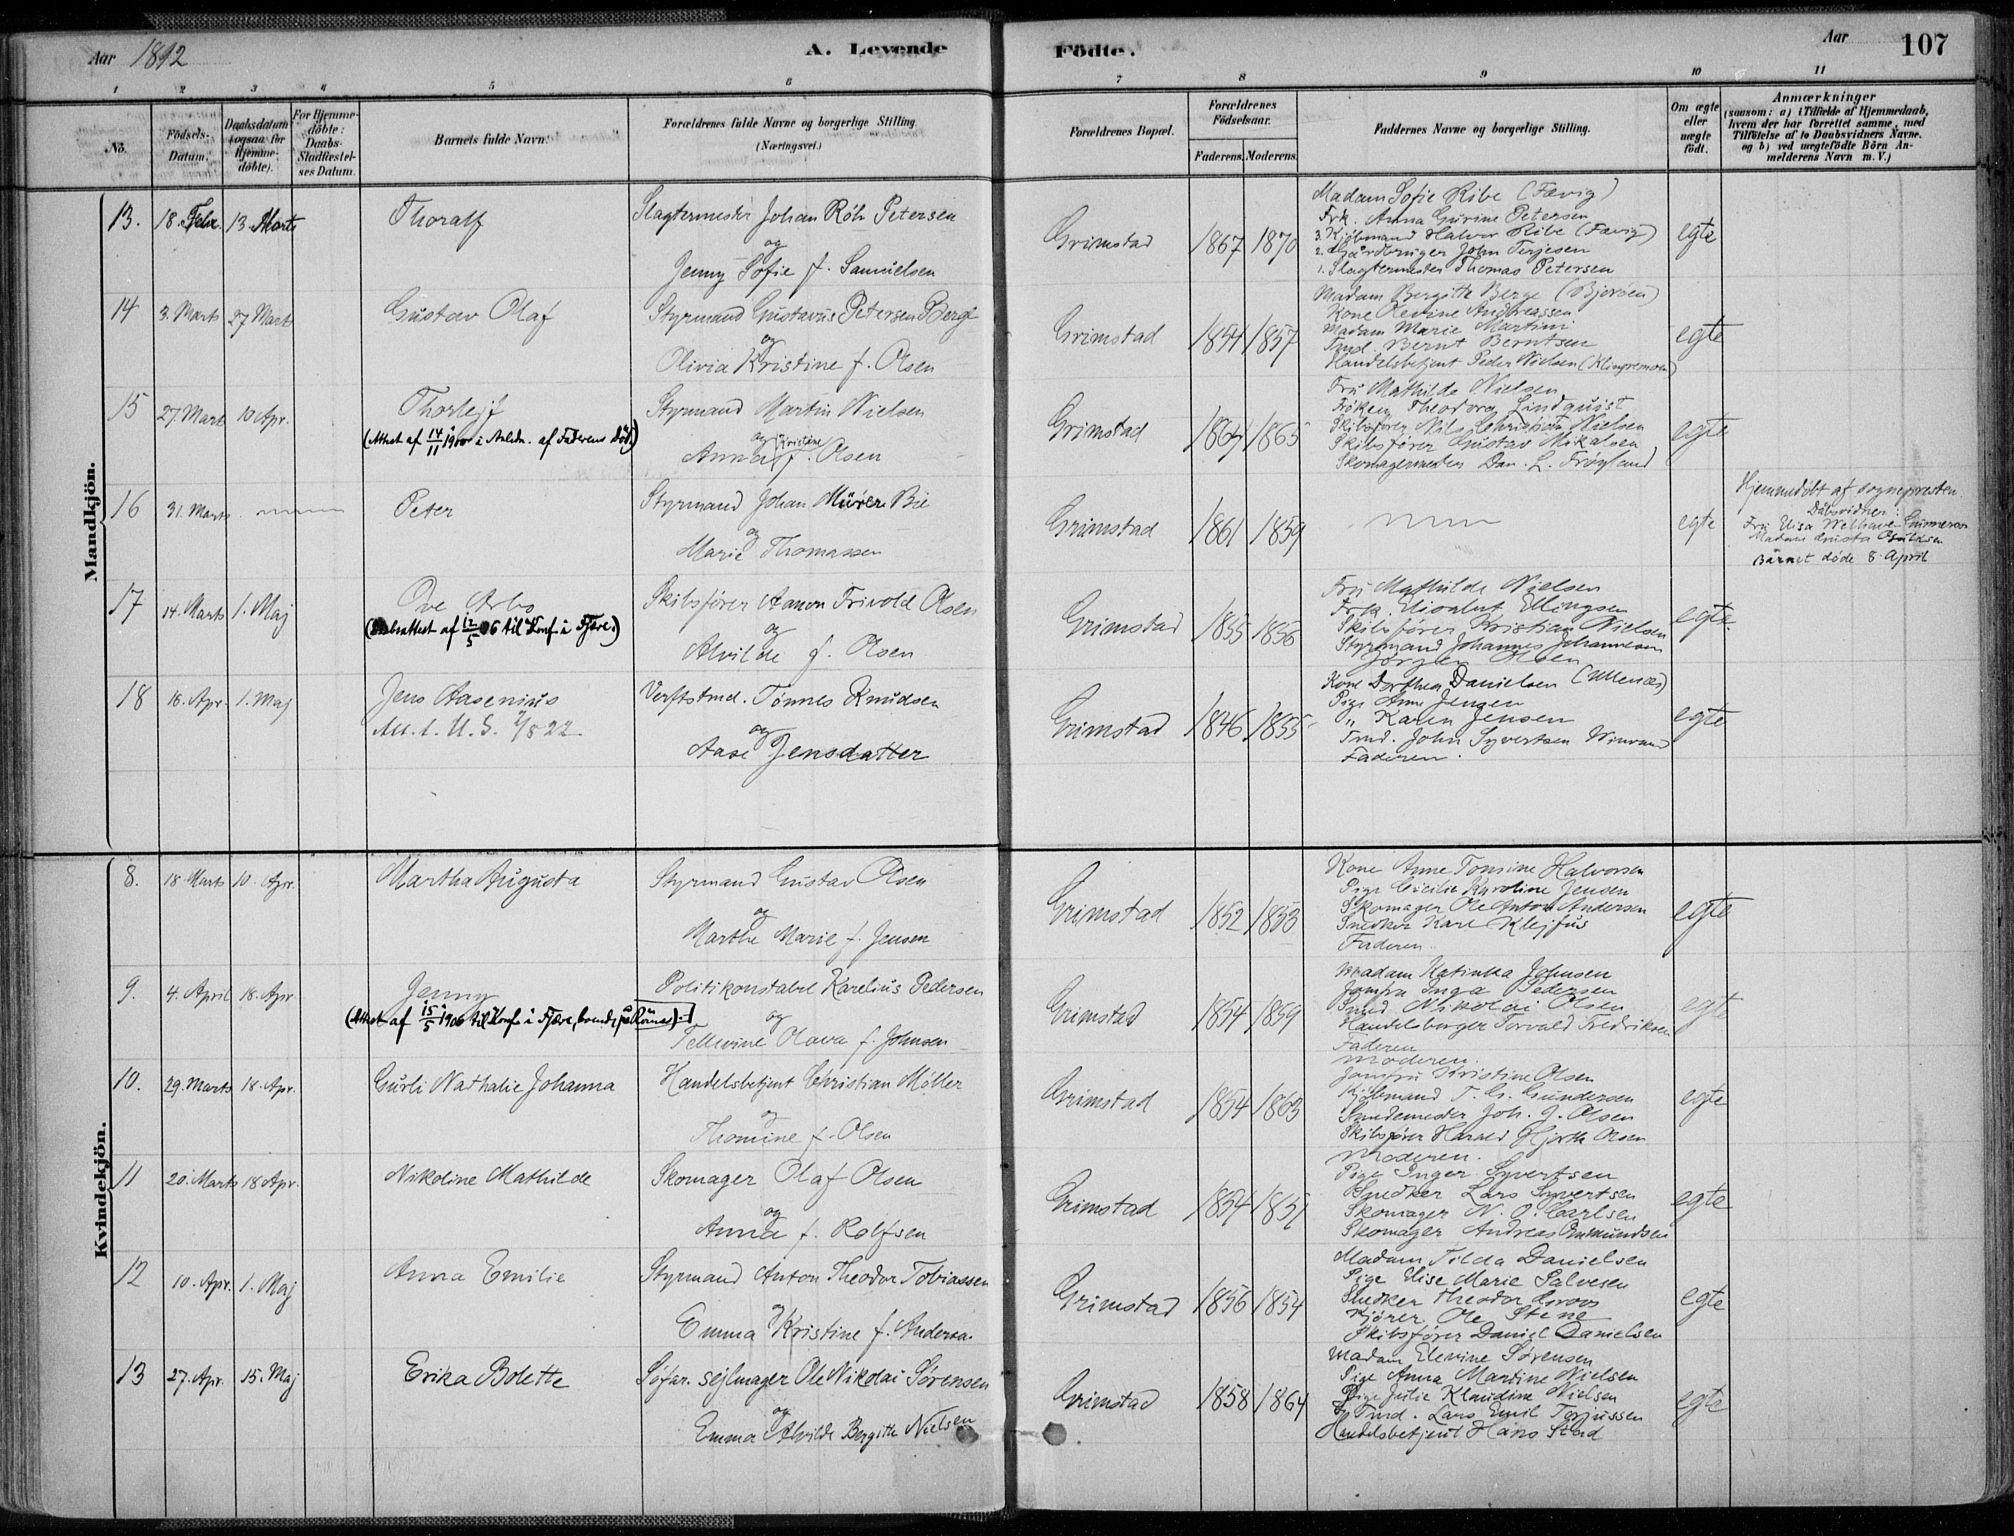 Aar 1892
A. Levende
Födte.
Aar
107
1 2 3 4 5 6 7 8 9 10 11
No.
Födsels-Datum.
Daabsdatum (ogsaa for Hjemmedöbte).
For Hjemmedöbte: Daabs-Stadfæstelses Datum.
Barnets fulde Navn.
Forældrenes fulde Navne og borgerlige Stilling.
(Næringsvei.)
Forældrenes Bopæl.
Forældrenes Födselsaar.
Faderens. Moderens.
Faddernes Navne og borgerlige Stilling.
Om ægte eller uægte födt.
Anmærkninger
(saasom: a) i Tilfælde af Hjemmedaab, hvem der har forrettet samme, med Tilföielse af to Daabsvidners Navne. og b) ved uægtefödte Börn Anmelderens Navn m. V.)
Mandkjön.
13. 18. Febr. 13. Marts Thoralf
Slagtermester Johan Petersen
og
Jenny Sofie f. Samuelsen
Grimstad 1867 1870
Madam Sofie Ribe (Fævig)
Frk. Anna Gurine Petersen
3. Kjöbmand Halvor Ribe (Fævig)
2. Gårdbruger John Terjesen
1. Slagtermester Thomas Petersen
egte
14 3. Marts 27 Marts Gustav Olaf
Styrmand Gustavus Petersen Berge
og
Olivia Kristine f. Olsen
Grimstad 1854 1857
Madam Bergitte Berge (Bjorøen)
Kone Olevine Andreassen
Madam Marie Martini
Tmd. Bernt Berntsen
Handelsbetjent Peder Nielsen
egte
15 27. Marts 10 Apr. Thorlejf
(Attest af 14/11 1900 i Anledn. af Faderens Död)
Styrmand Martin Nielsen
og Kristine
Anna f. Olsen
Grimstad 1864 1865
Fru Mathilde Nielsen
Fröken Theodora Lindquist
Skibsförer Nils Christian Nielsen
Skibsförer Gustav Mikalsen
Skomagermester Dan. L. Frøyland
egte
16 31. Marts Peter
Styrmand Johan Bie
og
Marie Thomassen
Grimstad 1861 1859
egte
Hjemmedöbt af Sognepresten.
Dåbsvidner:
Fru Elisa Welhaven Gunnerson
Madam
Barnet døde 8. April
17 14. Marts 1. Maj Ove Arbo
(Dåbsattest af 12/5 06 til Konf. i Fjære.)
Skibsförer Hanon Frivold Olsen
og
Alvilde f. Olsen
Grimstad 1855 1856
Fru Mathilde Nielsen
Frk. Elisabet Ellingsen
Skibsförer Kristian Nielsen
Styrmand Johannes Johannesen
Jörgen Olsen
egte.
18 16. Apr. 1. Maj Jens Aasenius
Att. t. U. S. 22
Verftstmd. Tönnes Knudsen
og
Aase Jensdatter
Grimstad 1846 1855
Kone Dorthea Danielsen
Pige Anne Jensen
" Karen Jensen
Tmd. John Syvertsen
Faderen.
egte
Kvindekjön.
8. 18 Marts 10. Apr. Martha Augusta
Styrmand Gustav Olsen
og
Marthe Marie f. Jensen
Grimstad 1852 1853
Kone Anne Tomine Halvorsen
Pige Cicilie Karoline Jensen
Skomager Ole Anton Andersen
Snedker Karl Klejfus
Faderen.
egte
9. 4. April 18. Apr. Jenny
(Attest af 15/5 1906 til Konf. i Fjære,
Politikonstabel Karelius Pedersen
og
Tellevine Olava f. Johnsen
Grimstad 1854 1859
Madam Katinka Johnsen
Jomfru Inga Pedersen
Smed Nikolai Olsen
Handelsborger Torvald Fredriksen
Faderen
Moderen.
egte
10. 29. Marts 18. Apr. Gurli Nathalie Johanna
Handelsbetjent Christian Möller
og
Thomine f. Olsen
Grimstad 1854 1863
Jomfru Kristine Olsen
Kjöbmand T. G. Gundersen
Smedemester Joh. G. Olsen
Skibsförer Harald Hjorth Olsen
Moderen.
egte
11 20. Marts 18 Apr. Nikoline Mathilde
Skomager Olaf Olsen
og
Anna f. Rolfsen
Grimstad 1854 1851
Pige Inger Syvertsen
Snedker Lars Syvertsen
Skomager N. O. Carlsen
Skomager Andreas Omundsen
egte
12 10. Apr. 1. Maj Anna Emilie
Styrmand Anton Theodor Tobiassen
og
Emma Kristine f. Andersen
Grimstad 1856 1854
Madam Tilda Danielsen
Pige Elise Marie Salvesen
Snedker Theodor
Kjörer Ole Stene
Skibsförer Daniel Danielsen
egte
13 27. Apr. 15. Maj Erika Bolette
Söfar. sejlmager Ole Nikolai Sörensen
og
Emma Alvilde Bergitte Nielsen
Grimstad 1858 1864
Madam Elevine Sörensen
Pige Anna Martine Nielsen
Pige Julie Klaudine Nielsen
Tmd. Lars Emil Terjussen
Handelsbetjent Hans Stad
egte